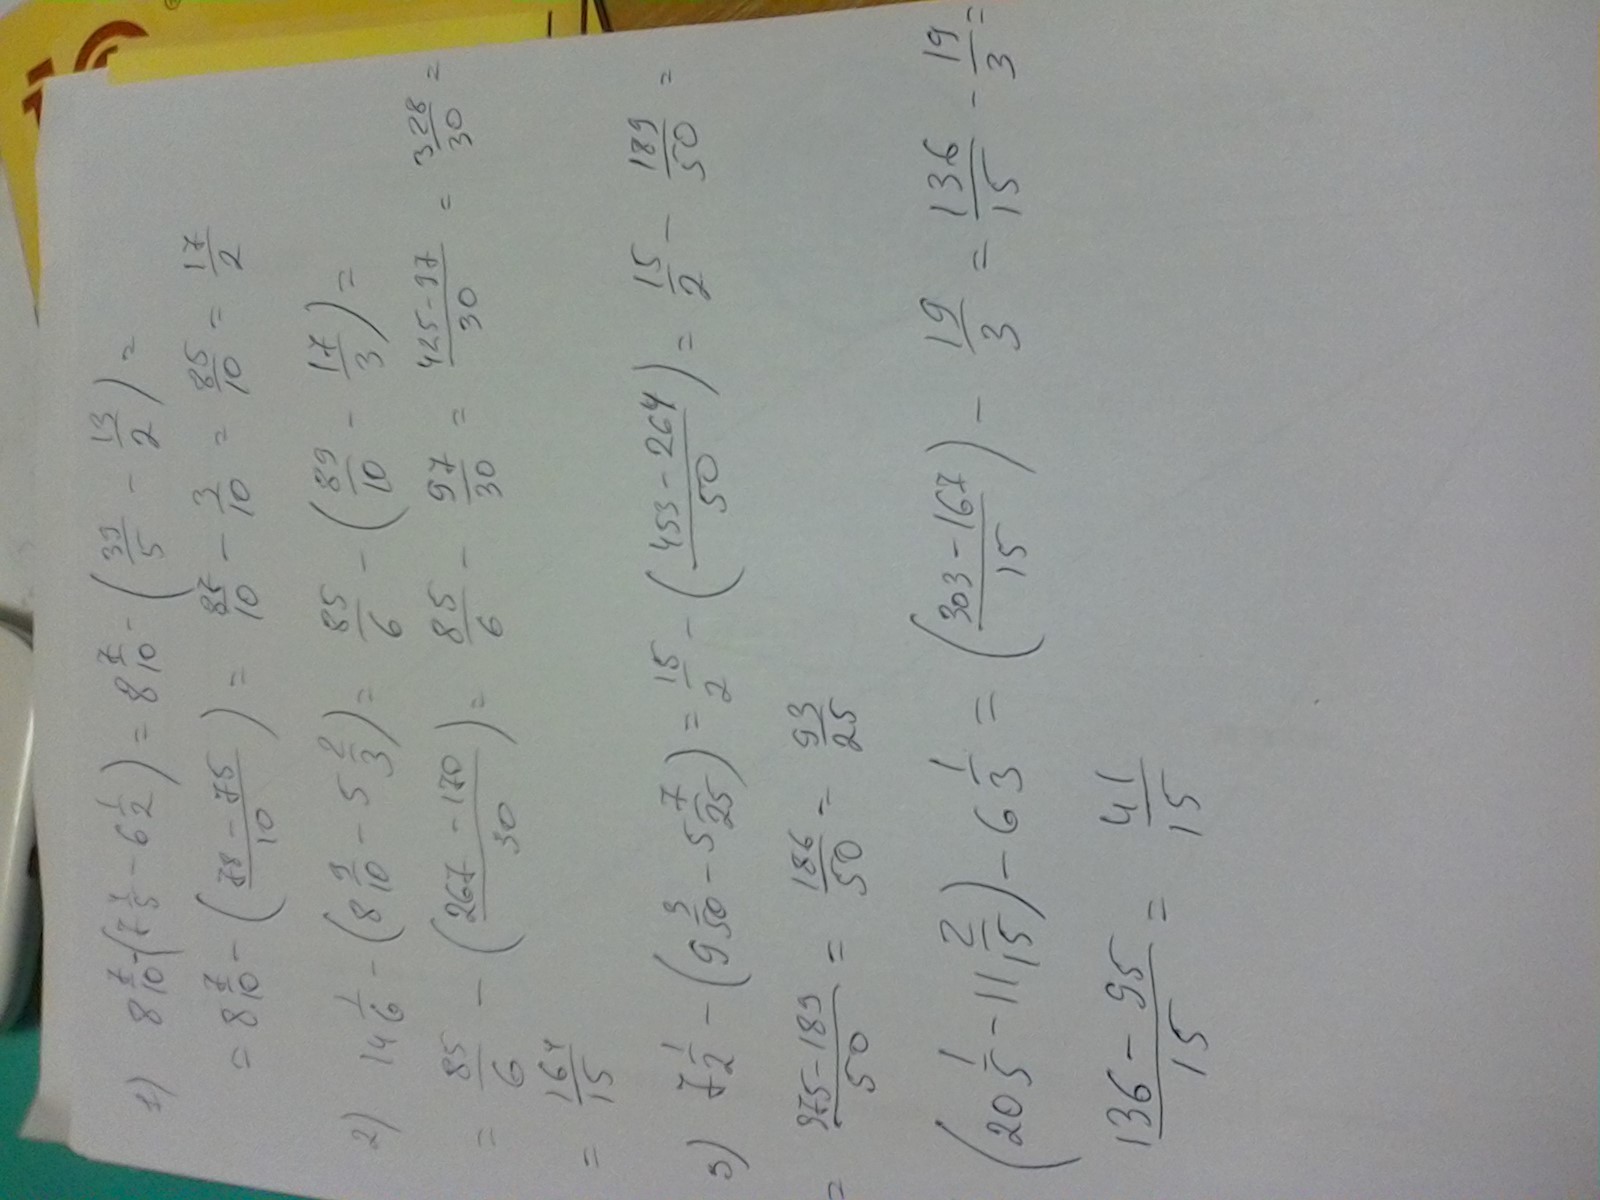 1) 8 7/10 - (7 4/5 - 6 1/2) = 8 7/10 - (39/5 - 13/2) =
= 8 7/10 - ((78 - 75)/10) = 87/10 - 3/10 = 85/10 = 17/2
2) 14 1/6 - (8 9/10 - 5 2/3) = 85/6 - (89/10 - 17/3) =
= 85/6 - ((267 - 170)/30) = 85/6 - 97/30 = (425 - 97)/30 = 328/30 =
= 164/15
3) 7 1/2 - (9 3/50 - 5 7/25) = 15/2 - ((453 - 264)/50) = 15/2 - 189/50 =
= (375 - 189)/50 = 186/50 = 93/25
(20 1/5 - 11 2/15) - 6 1/3 = ((303 - 167)/15) - 19/3 = 136/15 - 19/3 =
(136 - 95)/15 = 41/15